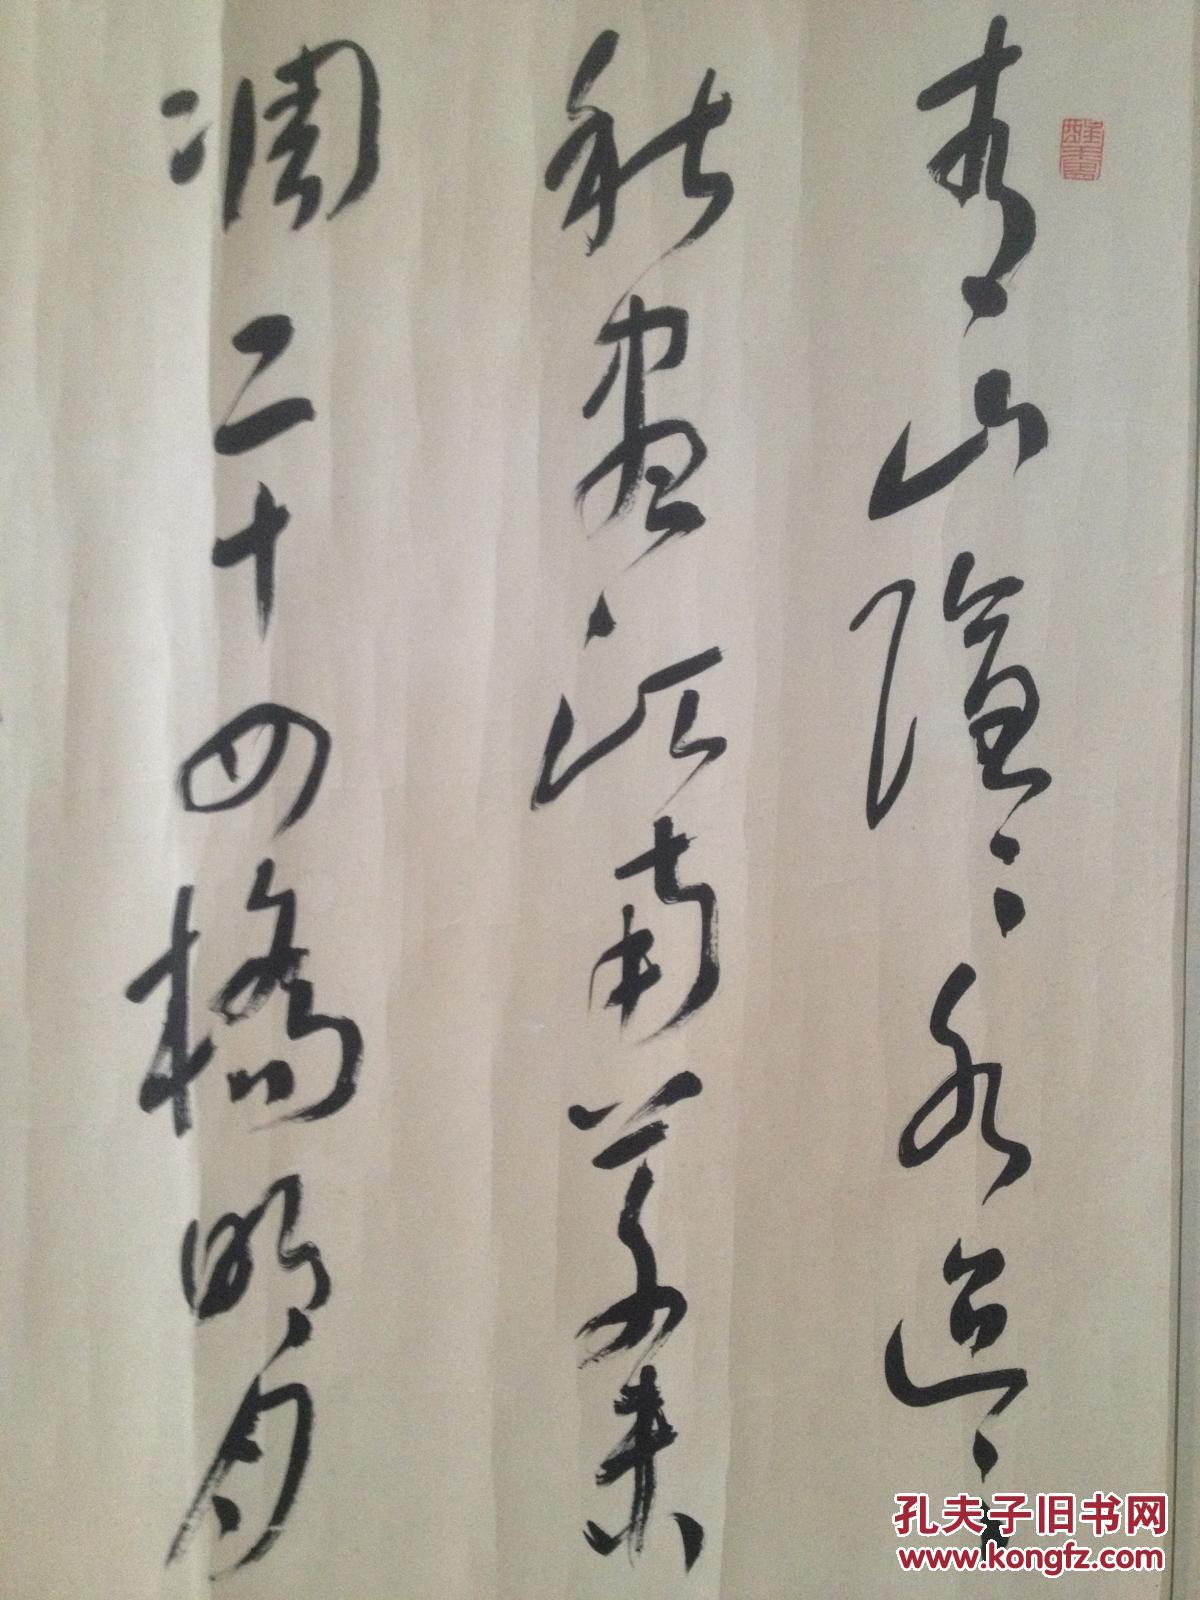 青山隐〻水迢〻
秋尽江南草未
凋二十四橋明月
孔夫子旧书网
www.kongfz.com